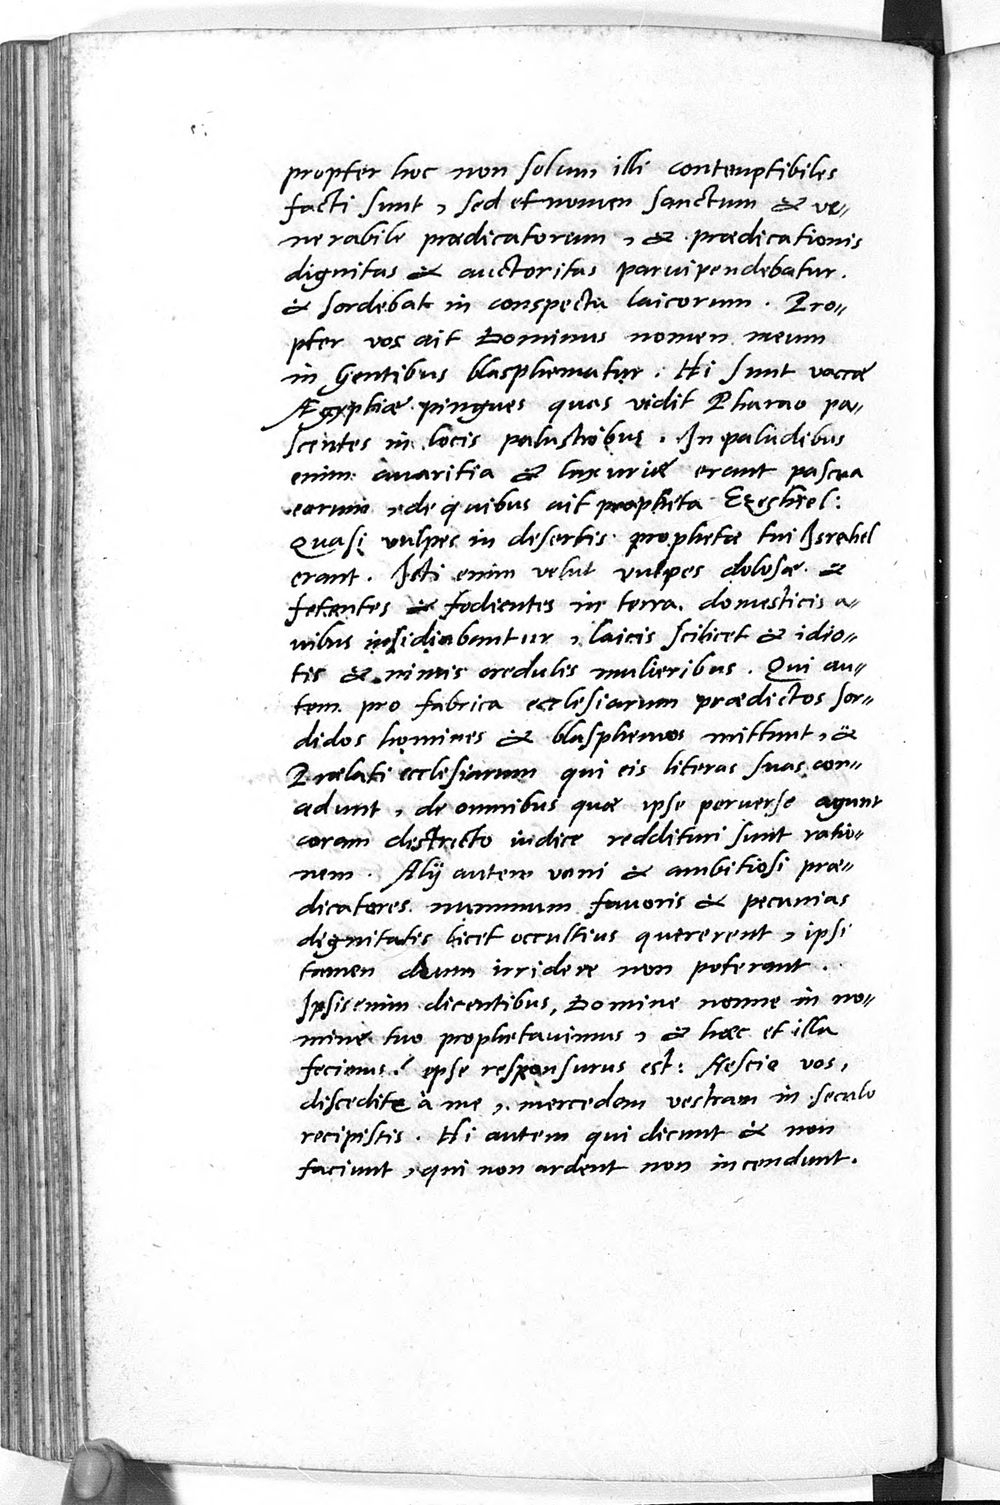 propter hoc non solum illi contemptibiles
facti sunt, sed et nomen sanctum & ve-
nerabile prædicatorum, & prædicationis
dignitas & auctoritas parvipendebatur.
& sordebat in conspectu laicorum. Pro-
pter vos ait Dominus nomen meum
in Gentibus blasphematur. Hi sunt vaccæ
Ægyptiæ pingues quas vidit Pharao pa-
scentes in locis palustribus. In paludibus
enim avaritia & luxuriæ erant pascua
eorum, de quibus ait propheta Ezechiel:
Quasi vulpes in desertis prophetæ tui Israhel
erant. Isti enim velut vulpes dolosæ &
fetentes & fodientes in terra. domesticis a-
uibus insidiabantur, laicis scilicet & idio-
tis & nimis credulis mulieribus. Qui au-
tem pro fabrica ecclesiarum prædictos sor-
didos homines & blasphemos mittunt, &
Prælati ecclesiarum qui eis literas suas con-
cedunt, de omnibus quæ ipse perverse agunt
coram districto iudice reddituri sunt ratio-
nem. Alij autem vani & ambitiosi præ-
dicatores nummum favoris & pecunias
dignitatis licet occultius quererent, ipsi
tamen deum irridere non poterant.
Ipsis enim dicentibus, Domine nonne in no-
mine tuo prophetavimus, & hæc et illa
fecimus? ipse responsurus est: Nescio vos,
discedite à me, mercedem vestram in seculo
recipistis. Hi autem qui dicunt & non
faciunt, qui non ardent non incendunt.